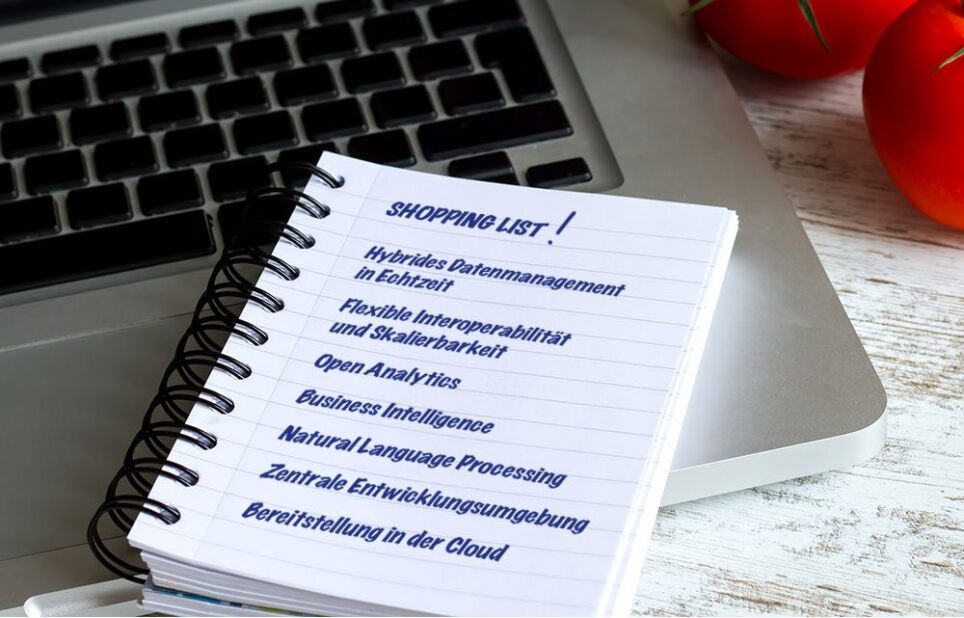 SHOPPING LIST!
Hybrides Datenmanagement
in Echtzeit
Flexible Interoperabilität
und Skalierbarkeit
Open Analytics
Business Intelligence
Natural Language Processing
Zentrale Entwicklungsumgebung
Bereitstellung in der Cloud